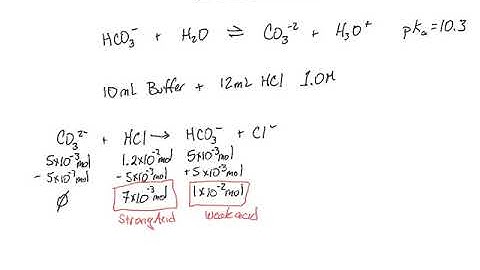 HCO₃⁻ + H₂O ⇌ CO₃⁻² + H₃O⁺ pKₐ=10.3
10mL Buffer + 12mL HCl 1.0M
CO₃²⁻ + HCl → HCO₃⁻ + Cl⁻
5x10⁻³mol 1.2x10⁻²mol 5x10⁻³mol
- 5x10⁻³mol - 5x10⁻³mol + 5x10⁻³mol
∅ 7x10⁻³mol 1x10⁻²mol
Strong Acid weak acid